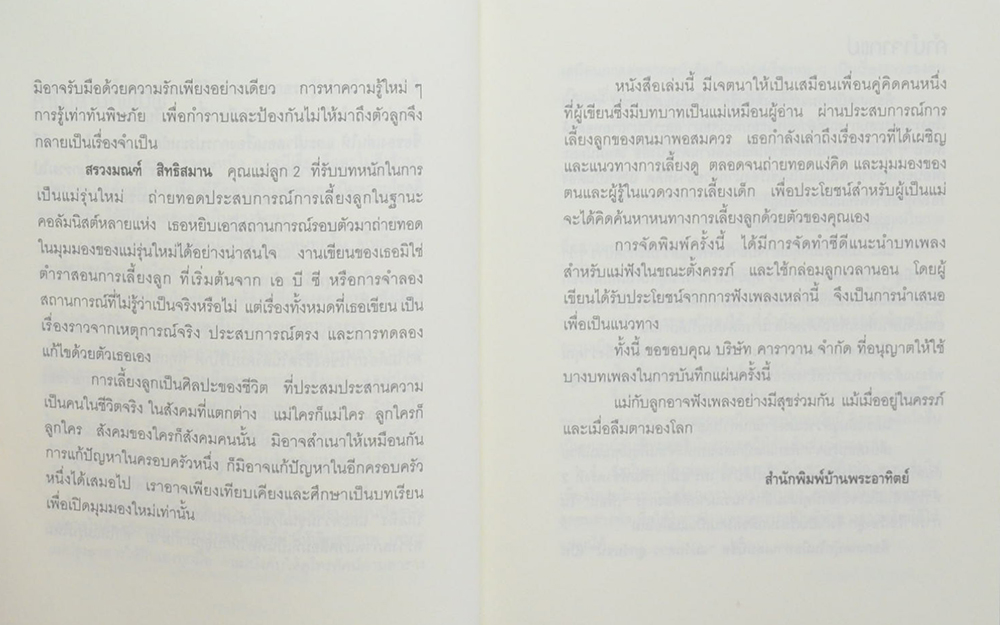 มิอาจรับมือด้วยความรักเพียงอย่างเดียว การหาความรู้ใหม่ ๆ
การรู้เท่าทันพิษภัย เพื่อกำราบและป้องกันไม่ให้มาถึงตัวลูกจึง
กลายเป็นเรื่องจำเป็น
สรวงมณฑ์ สิทธิสมาน คุณแม่ลูก 2 ที่รับบทหนักในการ
เป็นแม่รุ่นใหม่ ถ่ายทอดประสบการณ์การเลี้ยงลูกในฐานะ
คอลัมนิสต์หลายแห่ง เธอหยิบเอาสถานการณ์รอบตัวมาถ่ายทอด
ในมุมมองของแม่รุ่นใหม่ได้อย่างน่าสนใจ งานเขียนของเธอมิใช่
ตำราสอนการเลี้ยงลูก ที่เริ่มต้นจาก เอ บี ซี หรือการจำลอง
สถานการณ์ที่ไม่รู้ว่าเป็นจริงหรือไม่ แต่เรื่องทั้งหมดที่เธอเขียน เป็น
เรื่องราวจากเหตุการณ์จริง ประสบการณ์ตรง และการทดลอง
แก้ไขด้วยตัวเธอเอง
การเลี้ยงลูกเป็นศิลปะของชีวิต ที่ประสมประสานความ
เป็นคนในชีวิตจริง ในสังคมที่แตกต่าง แม่ใครก็แม่ใคร ลูกใครก็
ลูกใคร สังคมของใครก็สังคมคนนั้น มิอาจสำเนาให้เหมือนกัน
การแก้ปัญหาในครอบครัวหนึ่ง ก็มิอาจแก้ปัญหาในอีกครอบครัว
หนึ่งได้เสมอไป เราอาจเพียงเทียบเคียงและศึกษาเป็นบทเรียน
เพื่อเปิดมุมมองใหม่เท่านั้น
หนังสือเล่มนี้ มีเจตนาให้เป็นเสมือนเพื่อนคู่คิดคนหนึ่ง
ที่ผู้เขียนซึ่งมีบทบาทเป็นแม่เหมือนผู้อ่าน ผ่านประสบการณ์การ
เลี้ยงลูกของตนมาพอสมควร เธอกำลังเล่าถึงเรื่องราวที่ได้เผชิญ
และแนวทางการเลี้ยงดู ตลอดจนถ่ายทอดแง่คิด และมุมมองของ
ตนและผู้รู้ในแวดวงการเลี้ยงเด็ก เพื่อประโยชน์สำหรับผู้เป็นแม่
จะได้คิดค้นหาหนทางการเลี้ยงลูกด้วยตัวของคุณเอง
การจัดพิมพ์ครั้งนี้ ได้มีการจัดทำซีดีแนะนำบทเพลง
สำหรับแม่ฟังในขณะตั้งครรภ์ และใช้กล่อมลูกเวลานอน โดยผู้
เขียนได้รับประโยชน์จากการฟังเพลงเหล่านี้ จึงเป็นการนำเสนอ
เพื่อเป็นแนวทาง
ทั้งนี้ ขอขอบคุณ บริษัท คาราวาน จำกัด ที่อนุญาตให้ใช้
บางบทเพลงในการบันทึกแผ่นครั้งนี้
แม่กับลูกอาจฟังเพลงอย่างมีสุขร่วมกัน แม้เมื่ออยู่ในครรภ์
และเมื่อลืมตามองโลก
สำนักพิมพ์บ้านพระอาทิตย์